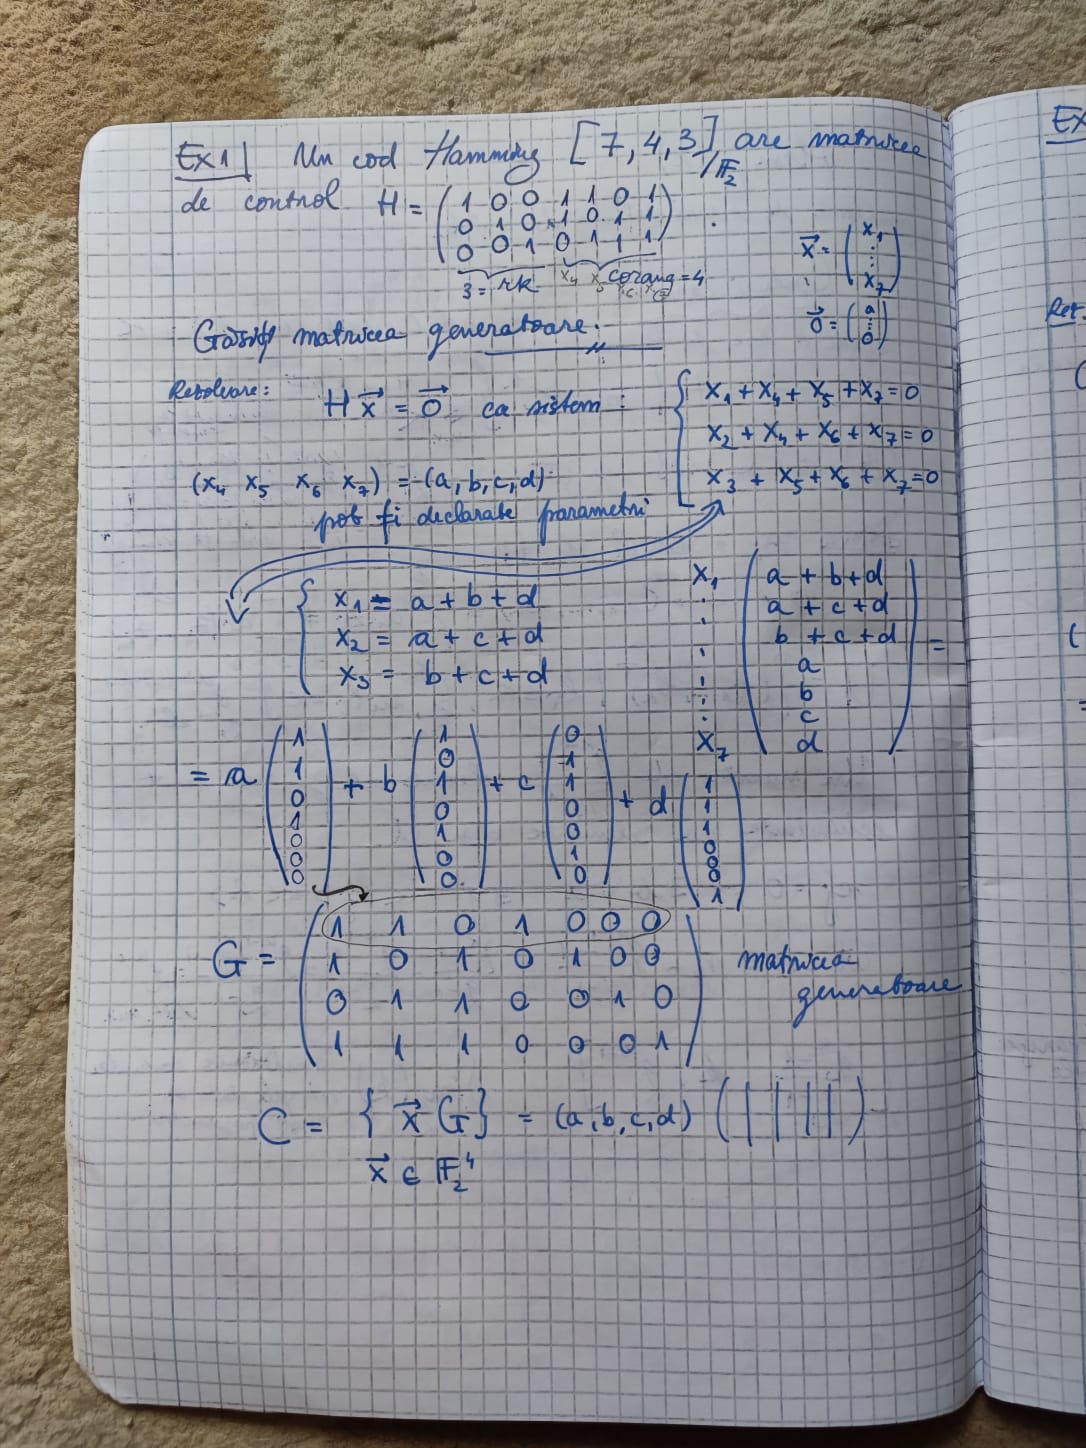 Ex1| Un cod Hamming [7,4,3] are matricea
/F₂
de control H = ( 1 0 0 1 1 0 1
0 1 0 1 0 1 1
0 0 1 0 1 1 1 ) .
3 = rk x₄ x₅ corang = 4
x⃗ = ( x₁
⋮
x₇ )
0⃗ = ( 0
⋮
0 )
Găsiți matricea generatoare.
Rezolvare: H x⃗ = 0⃗ ca sistem : { x₁ + x₄ + x₅ + x₇ = 0
x₂ + x₄ + x₆ + x₇ = 0
x₃ + x₅ + x₆ + x₇ = 0
(x₄ x₅ x₆ x₇) = (a, b, c, d)
pot fi declarate parametri
{ x₁ = a + b + d
x₂ = a + c + d
x₃ = b + c + d
x₁ ( a + b + d
. a + c + d
. b + c + d
. a
. b
. c
x₇ d ) =
= a ( 1 1 0 1 0 0 0 ) + b ( 1 0 1 0 1 0 0 ) + c ( 0 1 1 0 0 1 0 ) + d ( 1 1 1 0 0 0 1 )
G = ( 1 1 0 1 0 0 0
1 0 1 0 1 0 0
0 1 1 0 0 1 0
1 1 1 0 0 0 1 )
matricea
generatoare
C = { x⃗ G } = (a, b, c, d) ( | | | | | )
x⃗ ∈ F₂⁴
Ex
Rez.
(
(
=